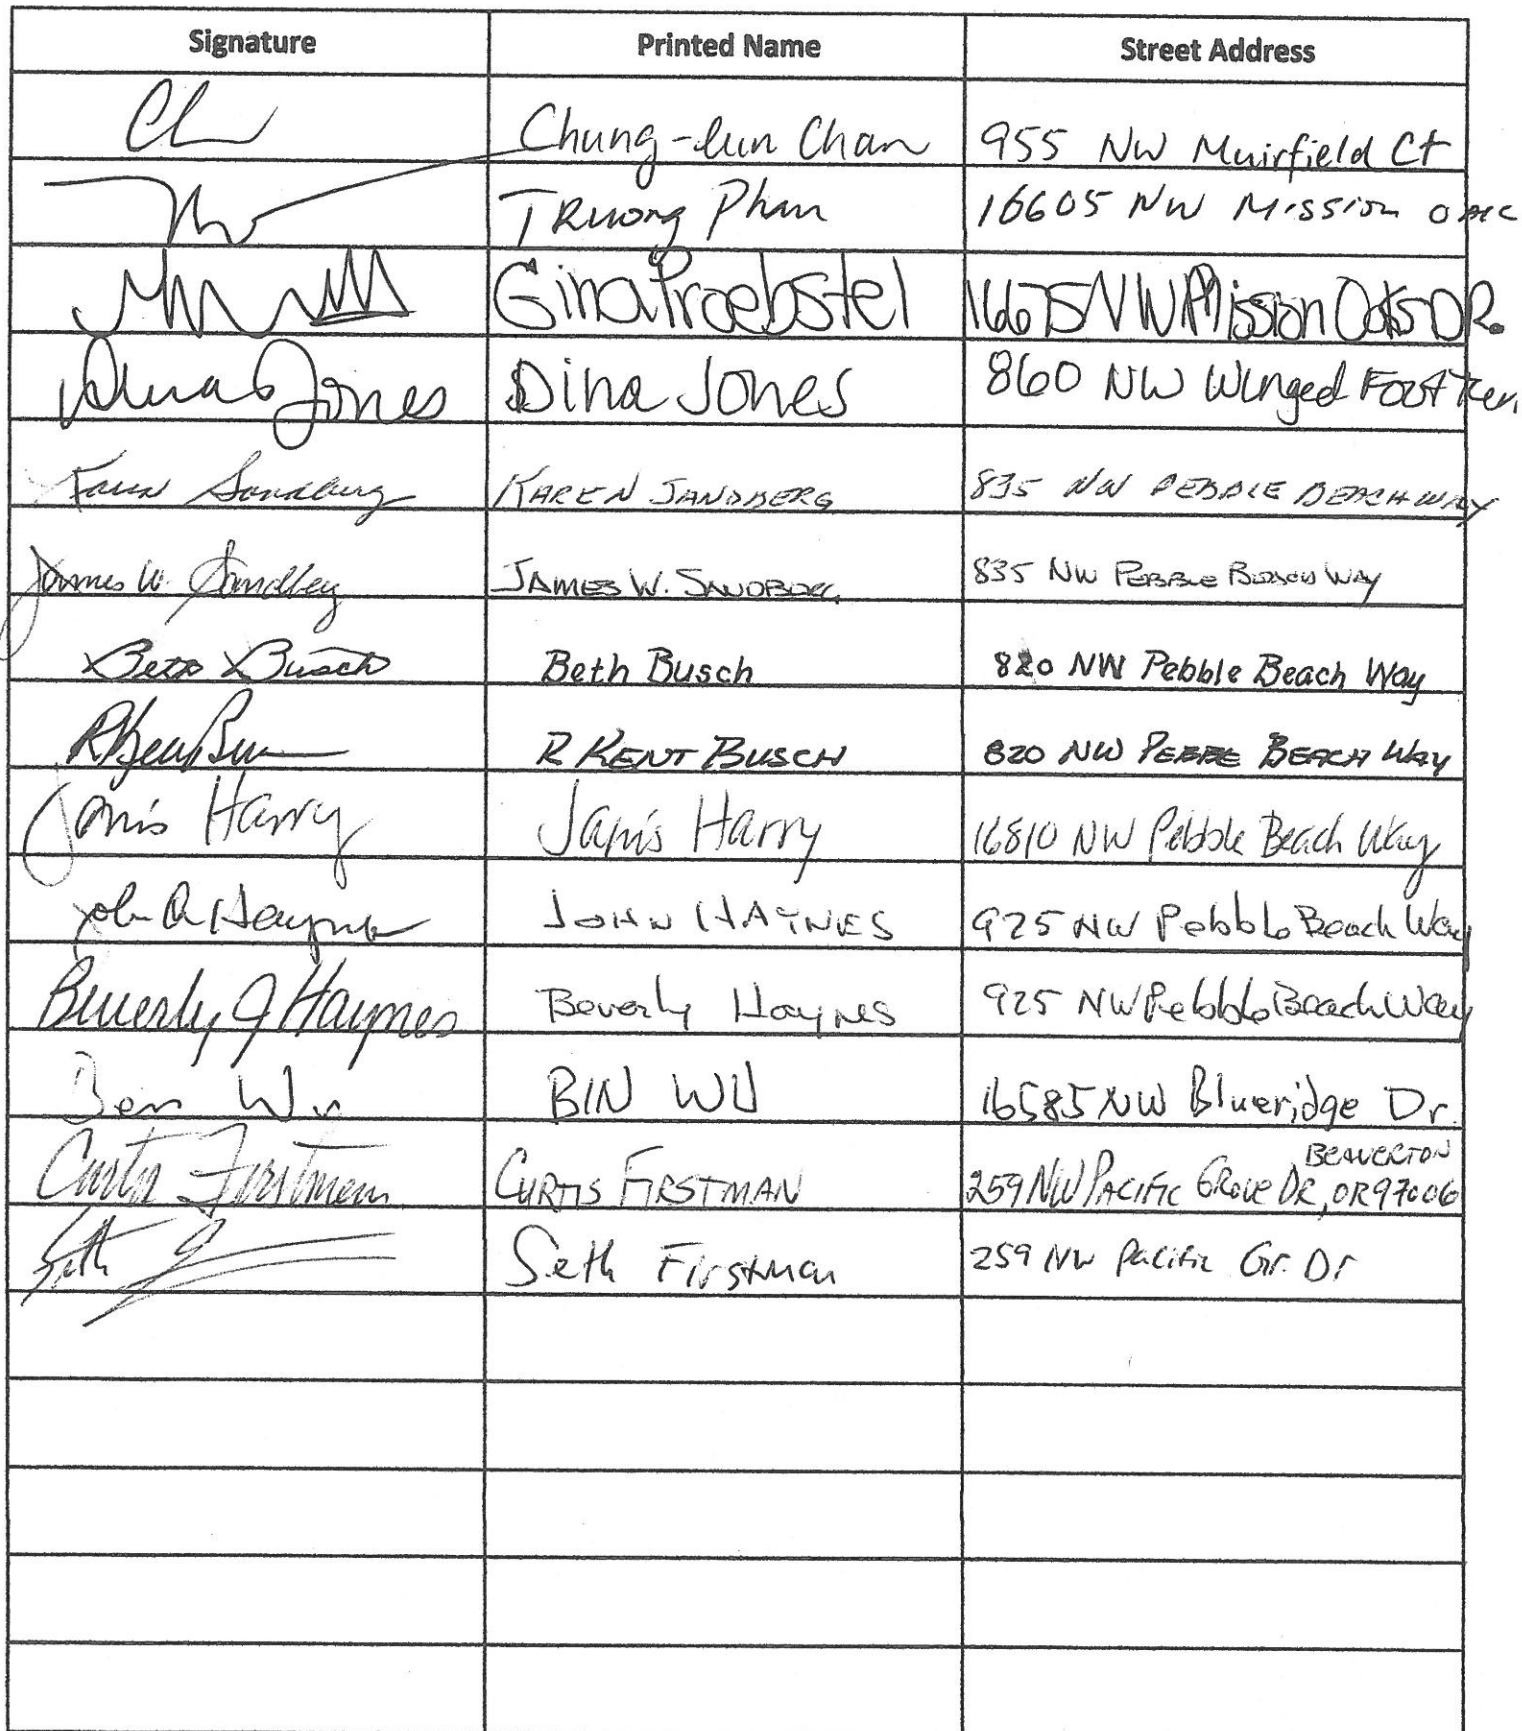 Signature Printed Name Street Address
Chung-lun Chan 955 NW Muirfield Ct
Truong Phan 16605 NW Mission Oak
Gina Proebstel 16675 NW Mission Oaks DR.
Dina Jones Dina Jones 860 NW Winged Foot Ter.
Karen Sandberg KAREN SANDBERG 835 NW PEBBLE BEACH WAY
James W. Sandberg JAMES W. SANDBERG 835 NW PEBBLE BEACH WAY
Beth Busch Beth Busch 820 NW Pebble Beach Way
R Kent R KENT BUSCH 820 NW PEBBLE BEACH WAY
Janis Harry Janis Harry 16810 NW Pebble Beach Way
John A Haynes JOHN HAYNES 925 NW Pebble Beach Way
Beverly J Haynes Beverly Haynes 925 NW Pebble Beach Way
Ben Wu BIN WU 16585 NW Blueridge Dr.
BEAVERTON
Curtis Firstman CURTIS FIRSTMAN 259 NW PACIFIC GROVE DR, OR 97006
Seth Seth Firstman 259 NW Pacific Gr. Dr